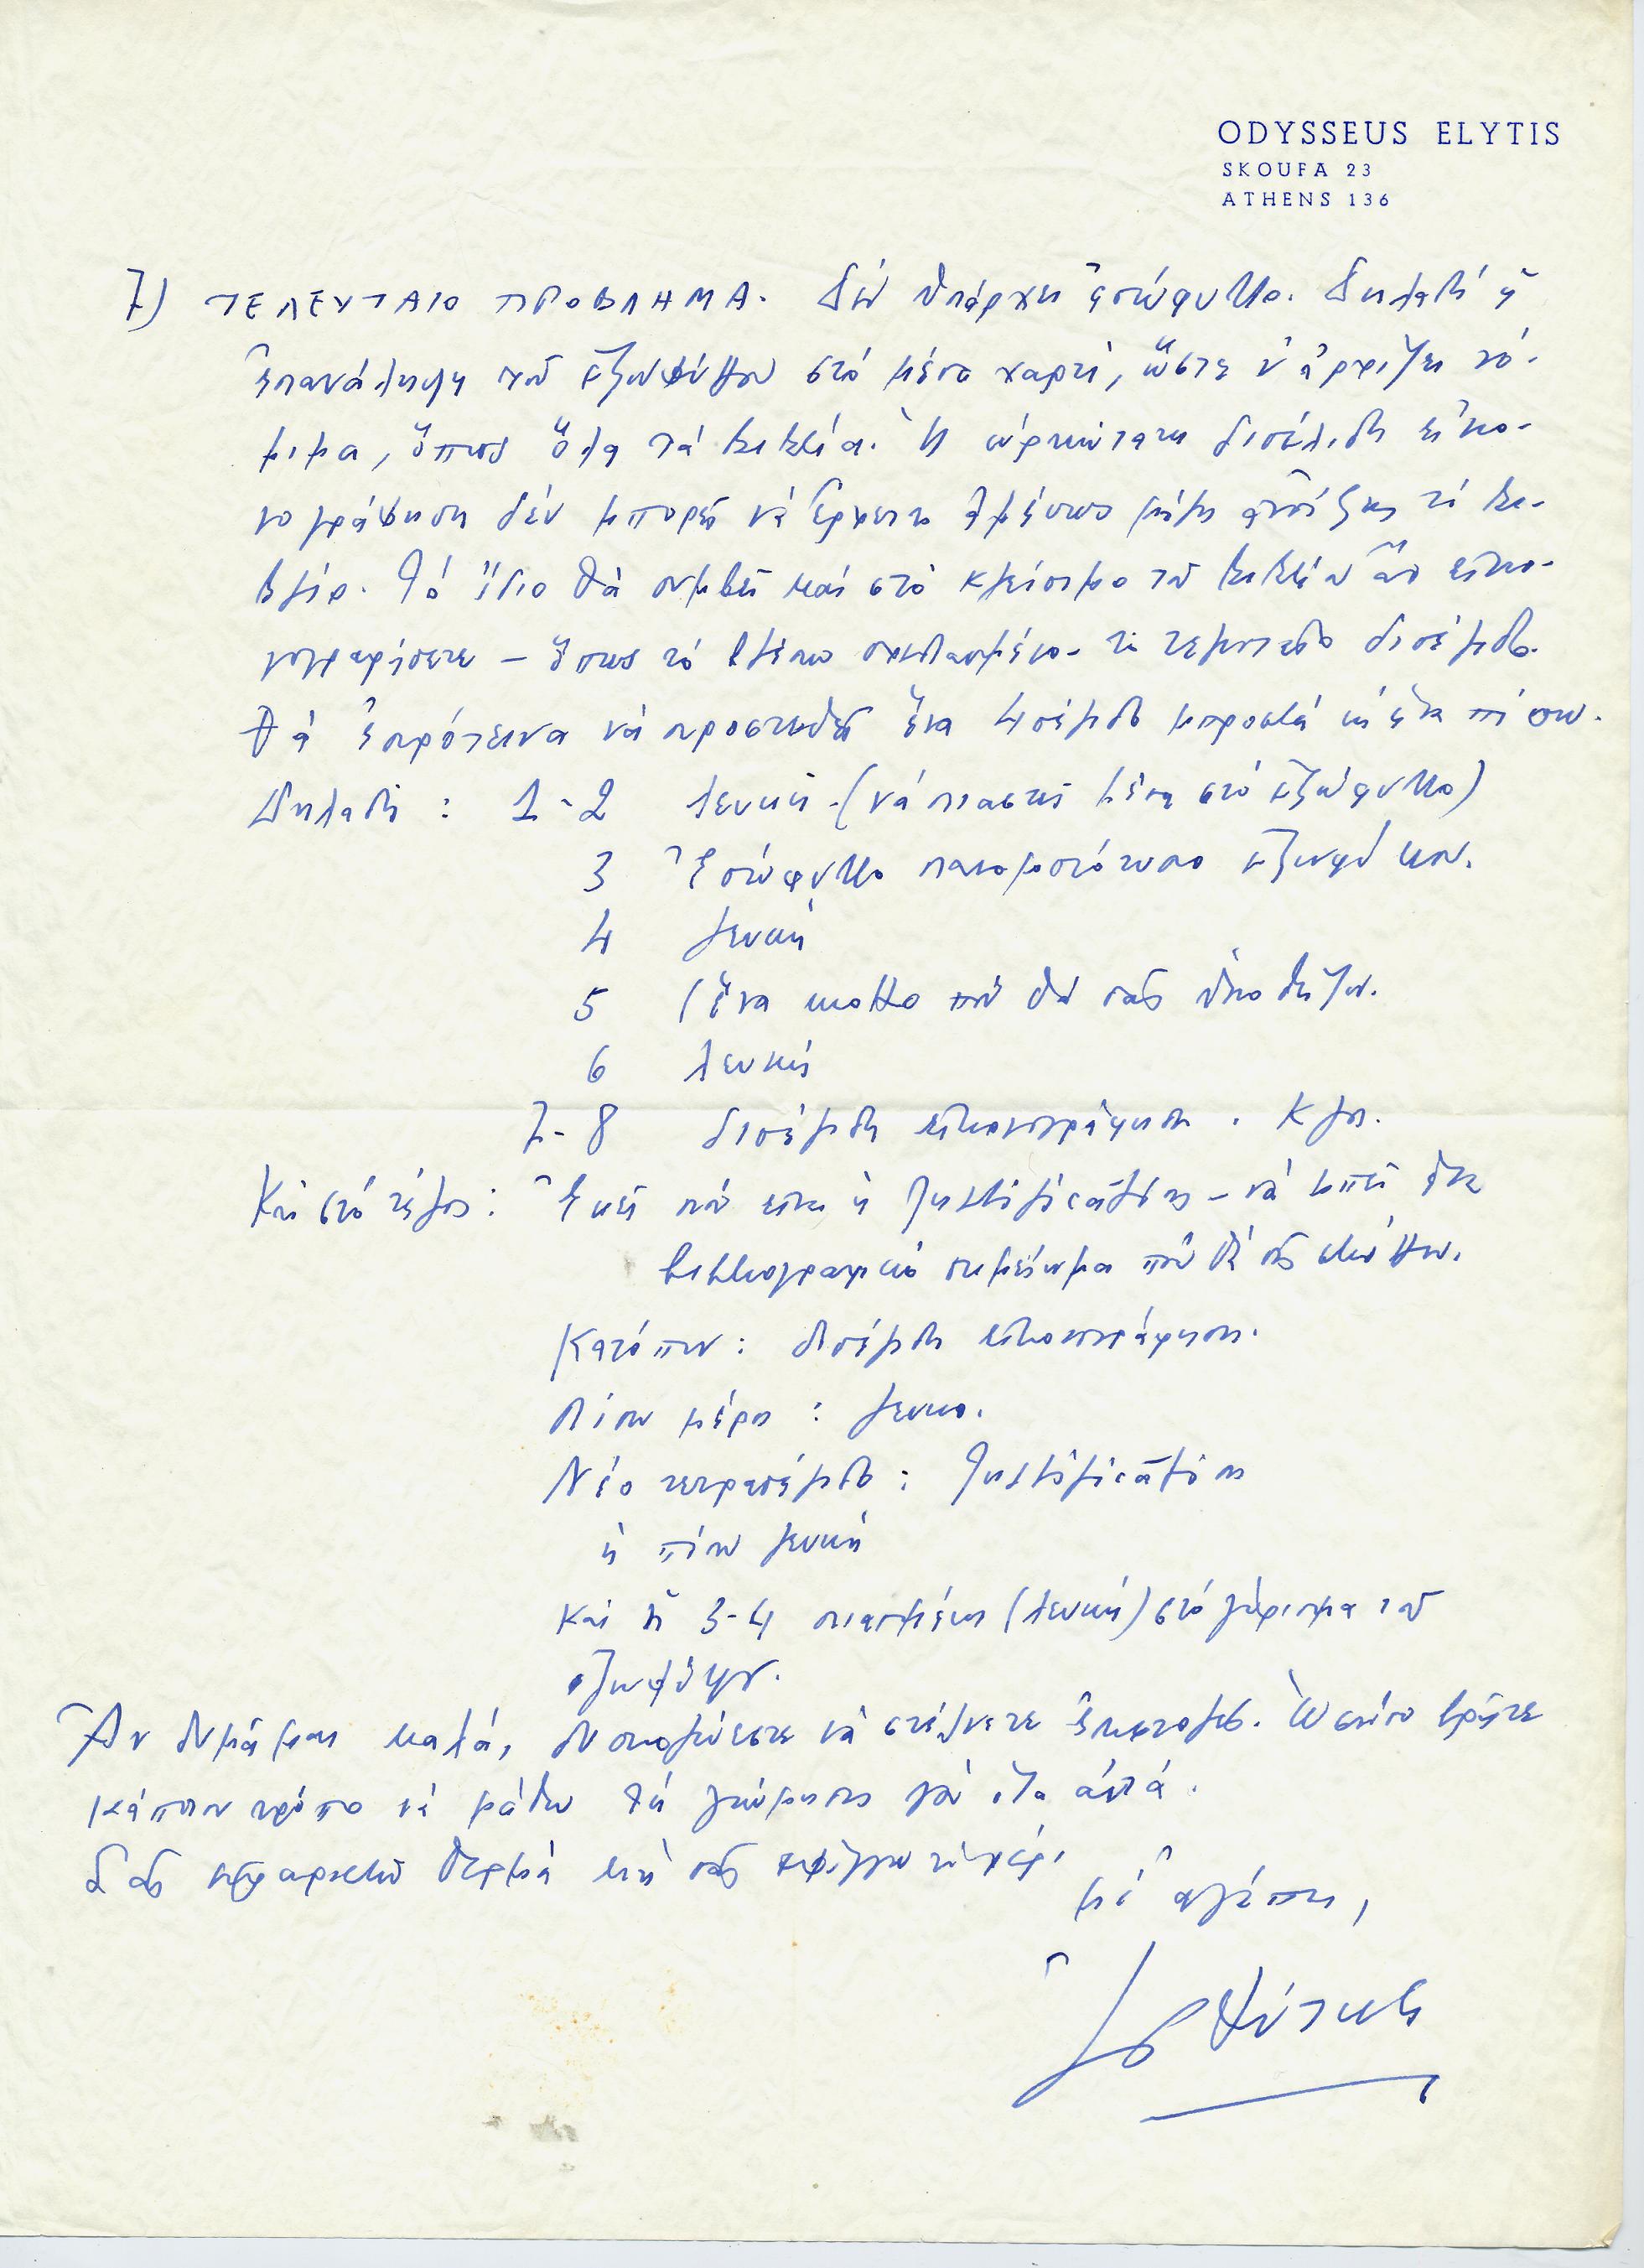 ODYSSEUS ELYTIS
SKOUFA 23
ATHENS 136
7) ΤΕΛΕΥΤΑΙΟ ΠΡΟΒΛΗΜΑ. Δέν ὑπάρχει ἐσώφυλλο. Δηλαδή ἡ
ἐπανάληψη τοῦ ἐξωφύλλου στό μέσα χαρτί, ὥστε ν' ἀρχίζει νό-
μιμα, ὅπως ὅλα τά βιβλία. Ἡ δισέλιδη εἰκο-
νογράφηση δέν μπορεῖ νά ἔρχεται ἀμέσως μόλις ἀνοίξεις τό βι-
βλίο. Τό ἴδιο θά συμβεῖ καί στό κλείσιμο τοῦ βιβλίου ἄν εἰκο-
νογραφήσετε – ὅπως τό βλέπω σχεδιασμένο – τό τελευταῖο δισέλιδο.
Θά ἐπρότεινα νά προστεθεῖ ἕνα 4σέλιδο μπροστά κι ἕνα πίσω.
Δηλαδή : 1-2 λευκή - (νά πιαστεῖ μέσα στό ἐξώφυλλο)
3 Ἐσώφυλλο πανομοιότυπο ἐξωφύλλου.
4 λευκή
5 (ἕνα μόττο πού θά σᾶς ὑποδείξω.
6 λευκή
7-8 δισέλιδη εἰκονογράφηση. Κλπ.
Καί στό τέλος : Ἐκεῖ πού εἶναι ἡ Justification – νά μπεῖ ἕνα
βιβλιογραφικό σημείωμα πού θά σᾶς στείλω.
Κατόπιν : δισέλιδη εἰκονογράφηση.
Πίσω μέρος : λευκό.
Νέο τετρασέλιδο : Justification
ἡ πίσω λευκή
καί ἡ 3-4 πιασμένη (λευκή) στό γύρισμα τοῦ
ἐξωφύλλου.
Ἄν θυμᾶμαι καλά, δυσκολεύεστε νά στέλνετε ἐπιστολές. Ὡστόσο βρῆτε
κάποιον τρόπο νά μάθω τή γνώμη σας γιά ὅλα αὐτά.
Σᾶς εὐχαριστῶ θερμά καί σᾶς σφίγγω τό χέρι
μέ ἀγάπη,
Ἐλύτης